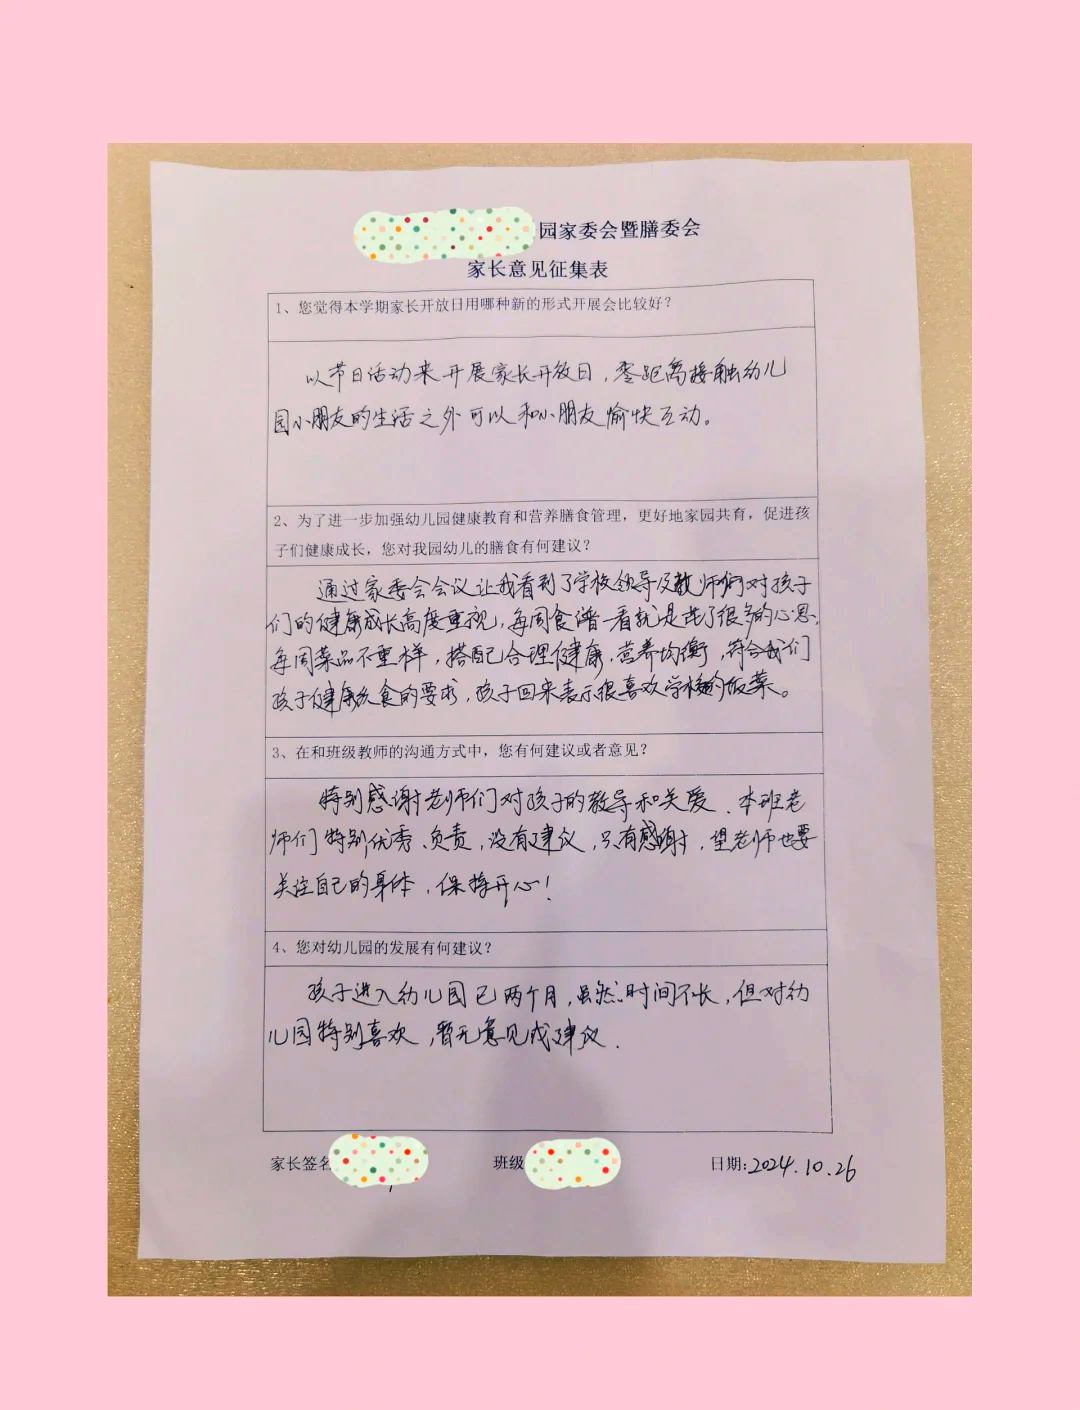 园家委会暨膳委会
家长意见征集表
1、您觉得本学期家长开放日用哪种新的形式开展会比较好？
以节日活动来开展家长开放日，零距离接触幼儿
园小朋友的生活之外可以和小朋友愉快互动。
2、为了进一步加强幼儿园健康教育和营养膳食管理，更好地家园共育，促进孩
子们健康成长，您对我园幼儿的膳食有何建议？
通过家委会会议让我看到了学校领导及教师们对孩子
们的健康成长高度重视，每周食谱一看就是花了很多的心思，
每周菜品不重样，搭配合理健康，营养均衡，符合我们
孩子健康饮食的要求，孩子回来表示很喜欢学校的饭菜。
3、在和班级教师的沟通方式中，您有何建议或者意见？
特别感谢老师们对孩子的教导和关爱、本班老
师们特别优秀、负责，没有建议，只有感谢，望老师也要
关注自己的身体，保持开心！
4、您对幼儿园的发展有何建议？
孩子进入幼儿园已两个月，虽然时间不长，但对幼
儿园特别喜欢，暂无意见或建议．
家长签名 班级 日期:2024.10.26